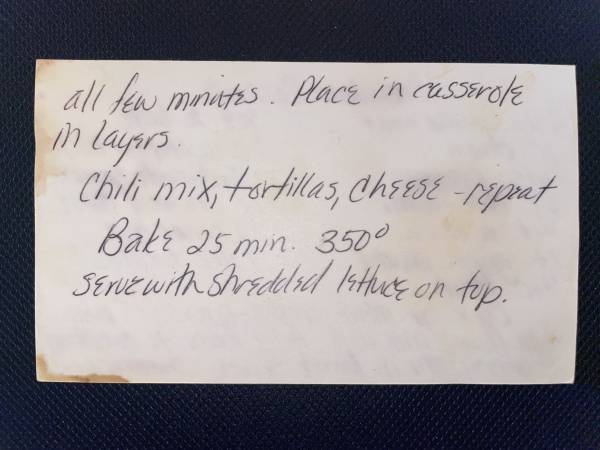 all few minutes. Place in casserole
in layers.
Chili mix, tortillas, cheese - repeat
Bake 25 min. 350°
Serve with shredded lettuce on top.